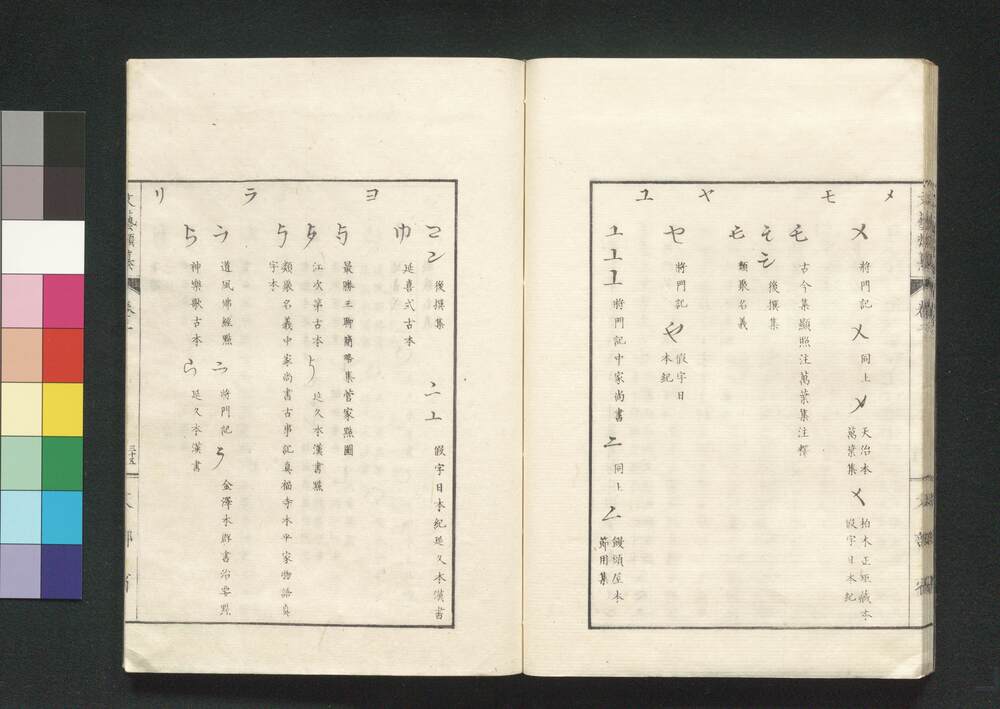 メ モ ヤ ユ
メ 將門記 メ 同上 メ 天治本萬葉集 メ 柏木正矩藏本假字日本紀
モ 古今集顯照注萬葉集注釋
モ モ 後撰集
モ 類聚名義
ヤ 將門記 ヤ 假字日本紀
ユ ユ ユ 將門記中家尚書 ユ 同上 ユ 饅頭屋本節用集
ヨ ラ リ
ヨ 後撰集 ニ 上 假字日本紀延久本漢書
巾 延喜式古本
与 最勝王聊簡略集菅家點圖
江次第古本 延久本漢書點
類聚名義中家尚書古事記真福寺本平家物語真字本
ラ 道風佛經點 ラ 將門記 ラ 金澤本群書治要點
ら 神樂歌古本 ら 延久本漢書
文藝類纂 卷一
三十五
文部省